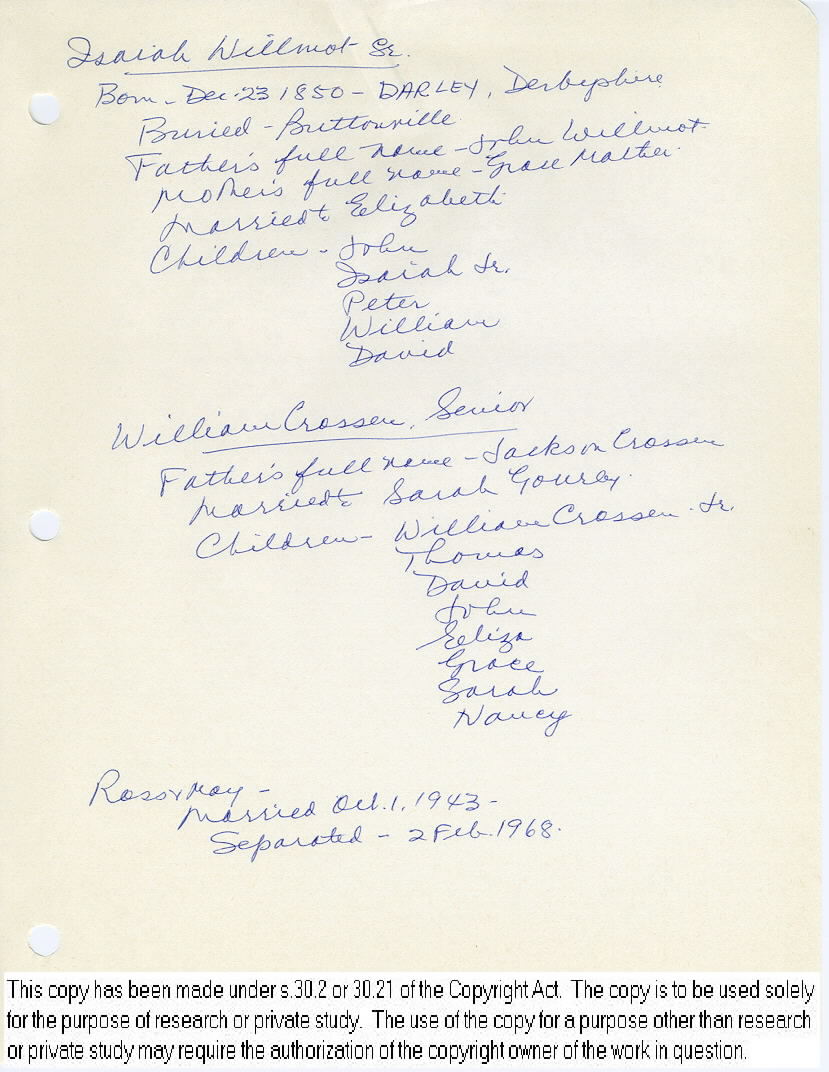 Isaiah Willmot Sr.
Born - Dec. 23 1850 - DARLEY, Derbyshire
Buried - Buttonville
Father's full name - John Willmot
Mother's full name - Grace Mather
Married to Elizabeth
Children - John
Isaiah Jr.
Peter
William
David
William Crossen, Senior
Father's full name - Jackson Crossen
Married to Sarah
Children - William Crossen Jr.
Thomas
David
John
Eliza
Grace
Sarah
Nancy
Ross & May -
Married Oct. 1, 1943 -
Separated - 2 Feb. 1968.
This copy has been made under s.30.2 or 30.21 of the Copyright Act. The copy is to be used solely
for the purpose of research or private study. The use of the copy for a purpose other than research
or private study may require the authorization of the copyright owner of the work in question.